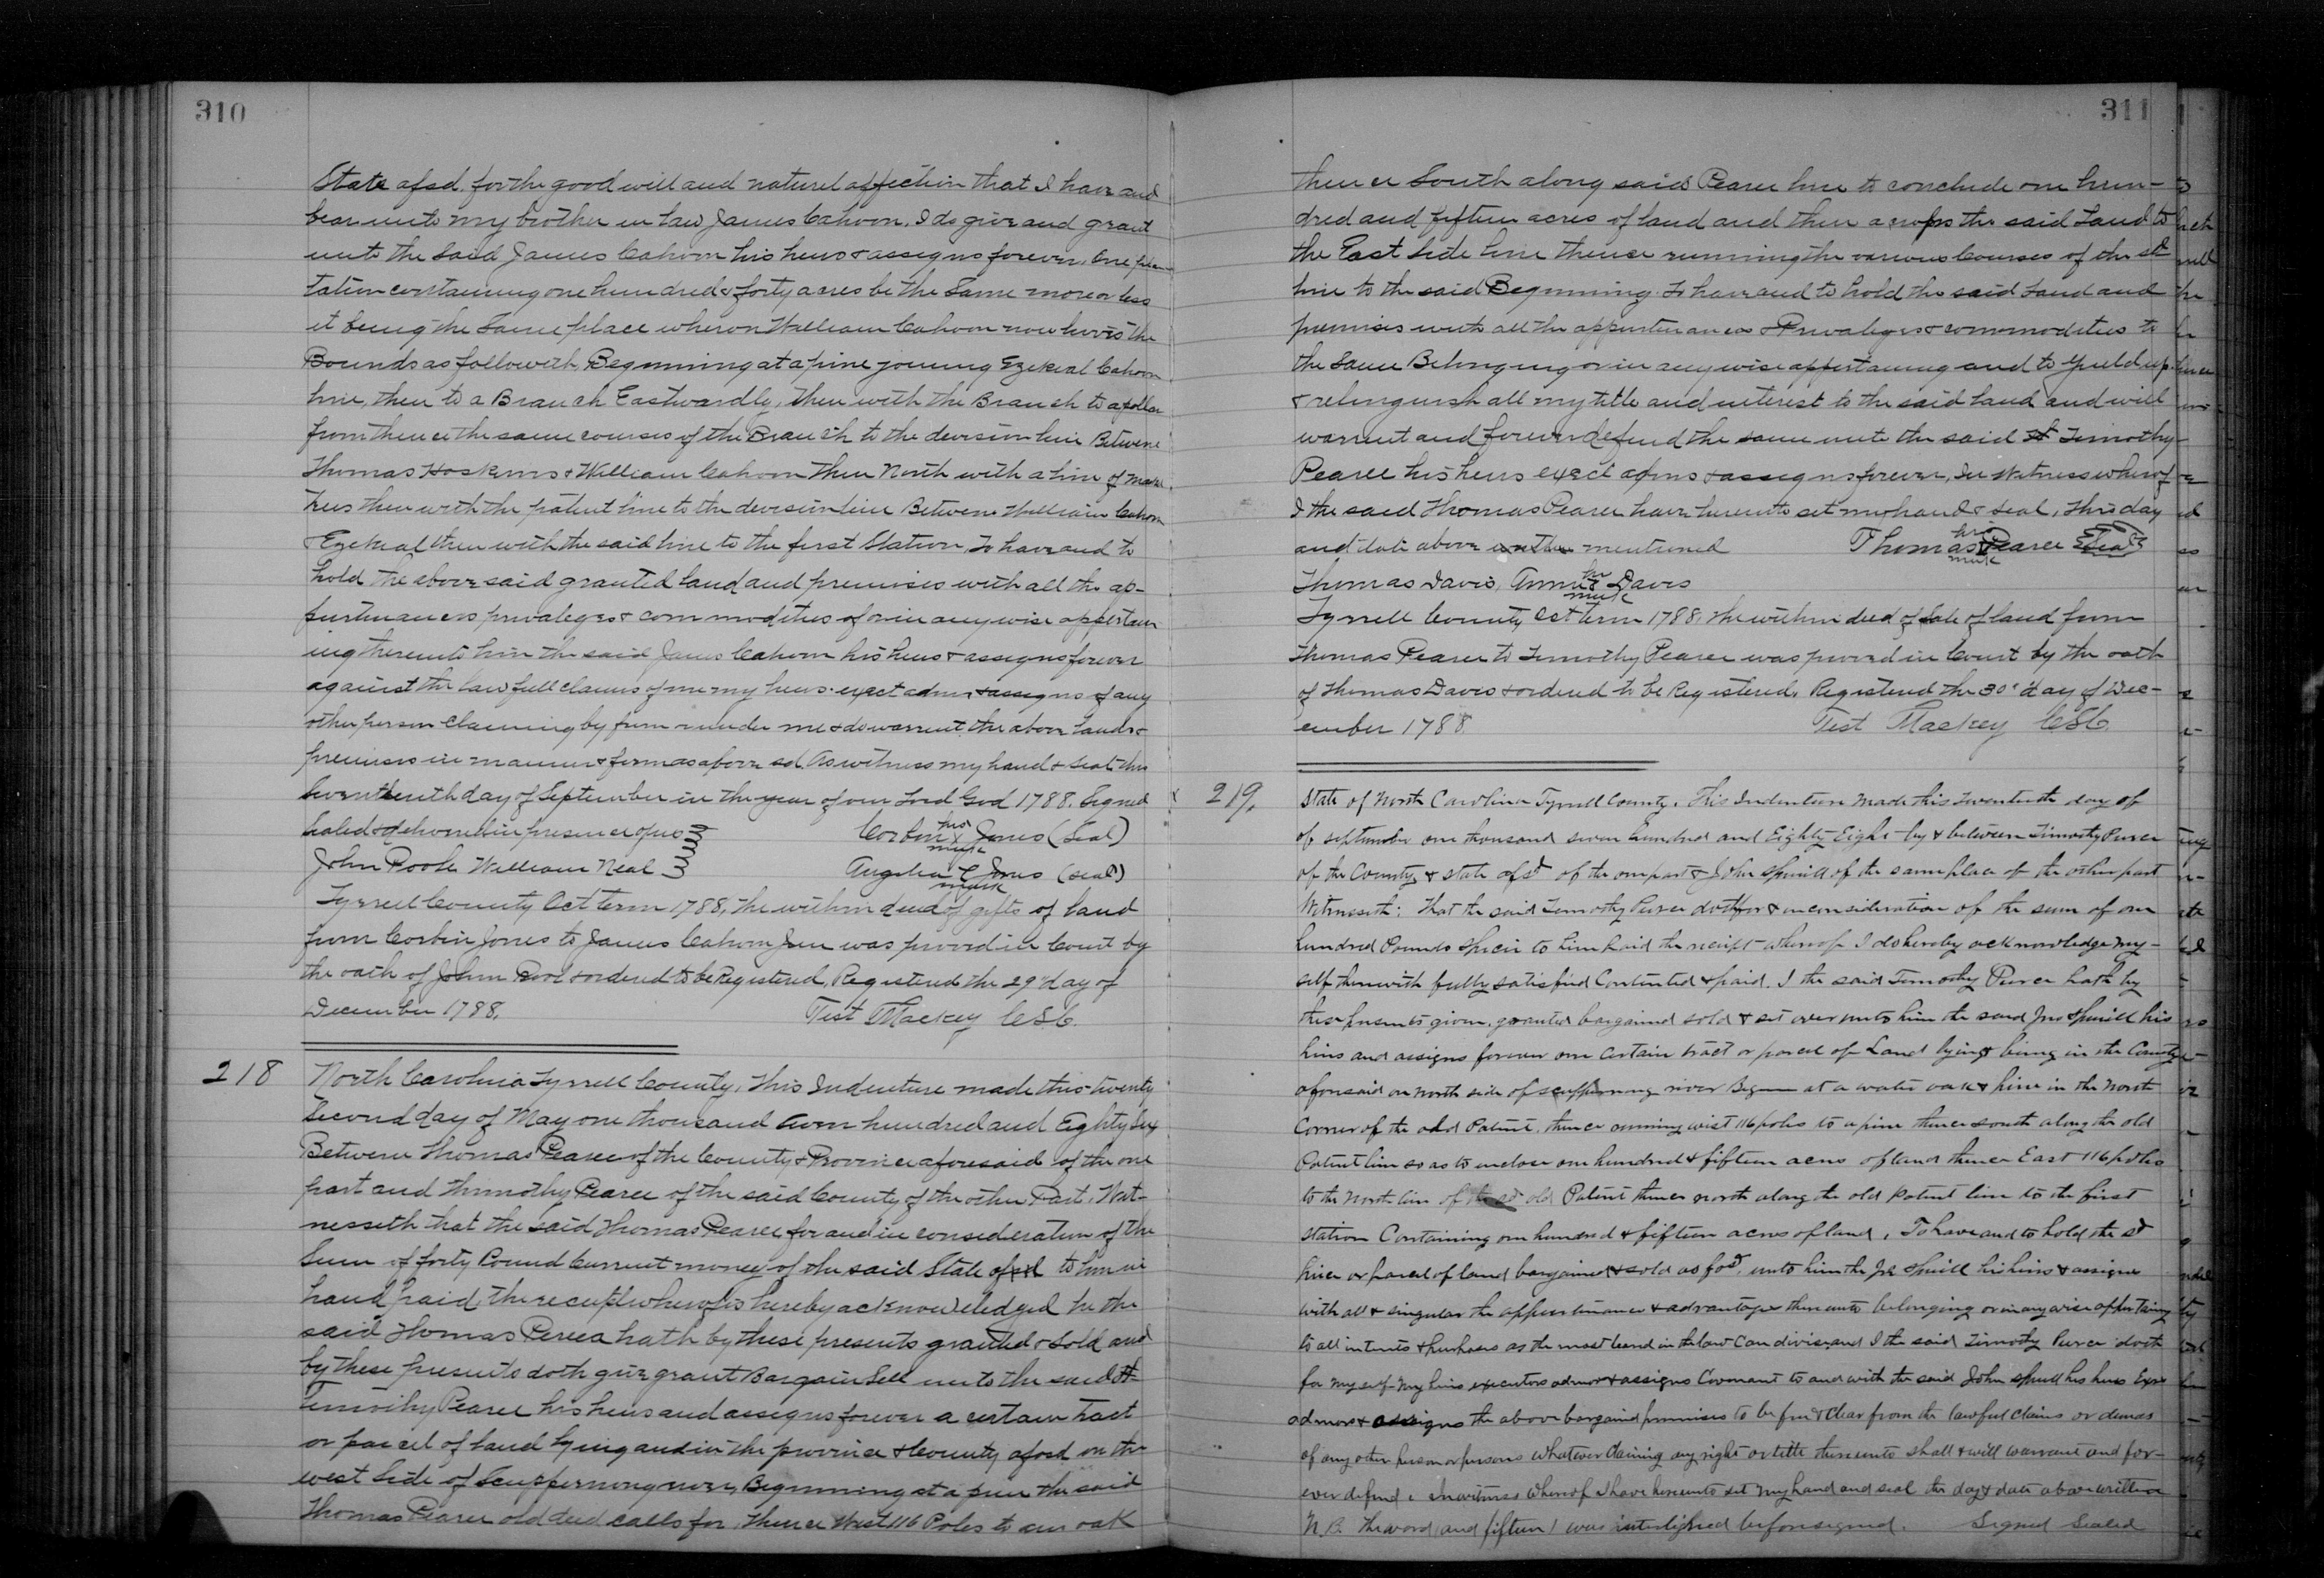 310
State afsd. for the good will and naturel affection that I have and
bear unto my brother in law James Cahoon, I do give and grant
unto the said James Cahoon his heirs & assigns forever, One plan
tation containing one hundred & forty acres be the Same more or less
it being the Same place wheron William Cahoon now lives the
Bounds as followith Beginning at a pine joining Ezekeal Cahoon
line, then to a Branch Eastwardly, then with the Branch to a poller
from thence the same courses of the Branch to the devision line Betwene
Thomas Hoskins & William Cahoon then North with a line of mark
trees then with the patent line to the devision line Betwene William Cahoon
& Ezekeal then with the said line to the first Station, To have and to
hold the above said granted land and premises with all the ap-
purtenances privaleges & commodities of or in any wise appertain
ing thereunto him the said James Cahoon his heirs & assigns forever
against the law full claims of me my heirs exect admrs & assigns of any
other person claiming by from or under me & do warrent the above lands &
premises in manner & form as afore sd. As witness my hand & seal this
seventeenth day of September in the year of our Lord God 1788. Signed
Sealed & deliverd in presence of us Corbin his x mark Jones (Seal)
John Poole William Neal Angelia C mark Jones (seal)
Tyrrell County Oct term 1788, the within deed of gifts of land
from Corbin Jones to James Cahoon Jun was proved in Court by
the oath of John Pool & ordered to be Registered, Registered the 29" day of
December 1788. Test Mackey CSC.
218 North Carolina Tyrrell County, This Indenture made this twenty
second day of May one thousand seven hundred and Eighty Six
Betwene Thomas Pearce of the County & Province aforesaid of the one
part and Thimothy Pearce of the said County of the other Part, Wit-
nesseth that the said Thomas Pearce for and in consideration of the
Sum of forty Pound Current money of the said State afsd to him in
hand paid the receipt wherof is hereby acknowledged he the
said Thomas Peirce hath by these presents granted & Sold and
by these presents doth give grant Bargain Sell unto the said
Timothy Pearce his heirs and assigns forever a certain tract
or parcel of land lying and in the province & County aforsd on the
west Side of Scuppernong river, Beginning at a pine the said
Thomas Pearce old deed calls for, thence West 116 Poles to an oak
311
thence South along said Pearce line to conclude one hun-
dred and fifteen acres of land and then across the said Land to
the East Side line thence running the various Courses of the sd
line to the said Beginning. To have and to hold the said Land and
premises with all the appurtenances & Privaleges & commodities to
the same Belonging or in any wise appertaining and to yield up
& relinquish all my title and interest to the said land and will
warrent and forever defend the same unto the said Timothy
Pearce his heirs exect admrs & assigns forever, In Witness wherof
I the said Thomas Pearce have hereunto set my hand & Seal, this day
and date above mentioned Thomas his x mark Pearce Seal
Thomas Davis, Anne her x mark Davis
Tyrrell County Oct term 1788, the within deed of sale of land from
Thomas Pearce to Timothy Pearce was proved in Court by the oath
of Thomas Davis & ordered to be Registered. Registered the 30" day of Dec-
ember 1788 Test Mackey CSC.
219. State of North Carolina Tyrrell County. This Indenture made this Twentieth day of
of september one thousand seven hundred and Eighty Eight by & between Timothy Peirce
of the County & state afsd of the one part & John Spruill of the same place of the other part
Witnesseth: That the said Timothy Peirce doth for & in consideration of the sum of one
hundred Pounds specie to him paid the receipt whereof I do hereby acknowledge my-
self therewith fully satisfied Contented & paid. I the said Timothy Peirce hath by
these presents given, granted bargained sold & set over unto him the said Jno Spruill his
heirs and assigns forever one certain tract or parcel of Land lying & being in the County
aforesaid on north side of scuppernong river Begin at a water oak & pine in the north
Corner of the old Patent, thence running west 116 poles to a pine thence south along the old
Patent line so as to enclose one hundred & fifteen acres of land thence East 116 poles
to the north line of the sd old Patent thence north along the old patent line to the first
station Containing one hundred & fifteen acres of land, To have and to hold the sd
piece or parcel of land bargained & sold as fosd, unto him the Jno Spruill his heirs & assigns
with all & singular the appurtenance & advantages thereunto belonging or in any wise appertaining
to all intents & purposes as the most learnd in the law can devise, and I the said Timothy Peirce doth
for my self my heirs executors admors & assigns Covenant to and with the said John spruill his heirs Exrs
admors & assigns the above bargaind premises to be free & clear from the lawful claims or demas
of any other person or persons whatever claiming any right or title thereunto shall & will warrant and for-
ever defend. In witness whereof I have hereunto set my hand and seal the day & date above written
N.B. The word (and fifteen) was interlighned before signed. Signed Sealed